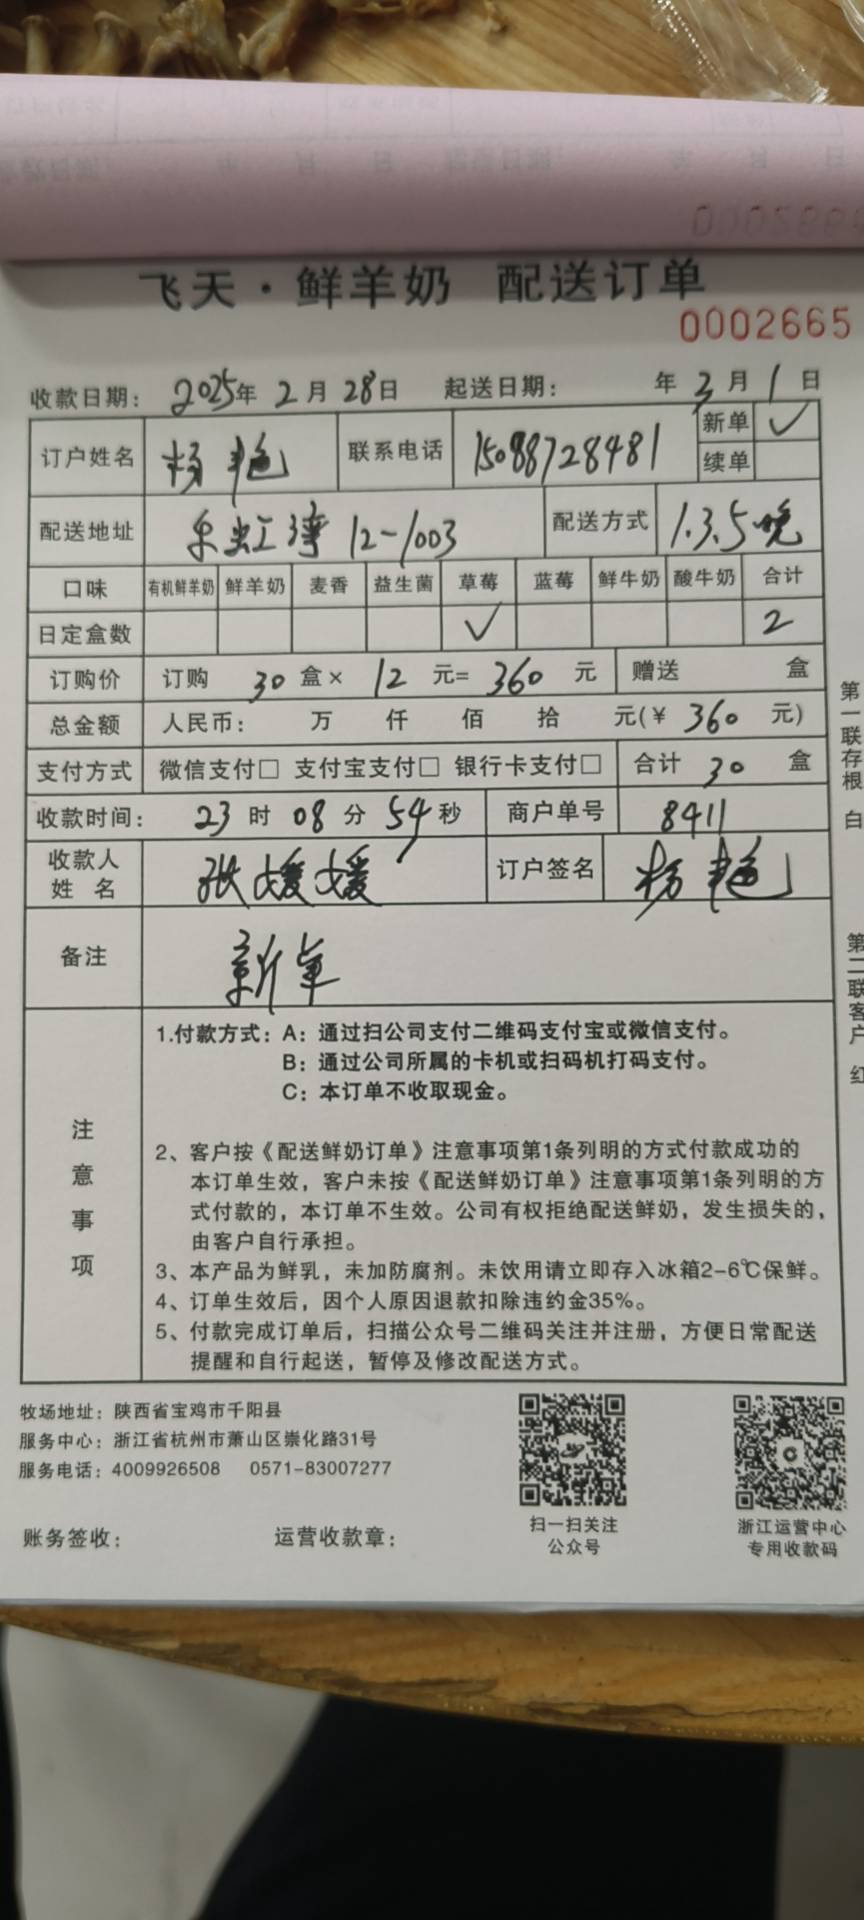 飞天·鲜羊奶 配送订单
0002665
收款日期： 2025年 2月 28日 起送日期： 年 3月 1日
订户姓名 杨艳 联系电话 15088728481 新单 ✓
续单
配送地址 乐虹湾 12-1003 配送方式 1.3.5晚
口味 有机鲜羊奶 鲜羊奶 麦香 益生菌 草莓 蓝莓 鲜牛奶 酸牛奶 合计
日定盒数 ✓ 2
订购价 订购 30 盒× 12 元= 360 元 赠送 盒
总金额 人民币： 万 仟 佰 拾 元(¥ 360 元)
支付方式 微信支付□ 支付宝支付□ 银行卡支付□ 合计 30 盒
收款时间： 23 时 08 分 54 秒 商户单号 8411
收款人姓名 张媛媛 订户签名 杨艳
备注 新单
注意事项
1.付款方式：A：通过扫公司支付二维码支付宝或微信支付。
B：通过公司所属的卡机或扫码机打码支付。
C：本订单不收取现金。
2、客户按《配送鲜奶订单》注意事项第1条列明的方式付款成功的
本订单生效，客户未按《配送鲜奶订单》注意事项第1条列明的方
式付款的，本订单不生效。公司有权拒绝配送鲜奶，发生损失的，
由客户自行承担。
3、本产品为鲜乳，未加防腐剂。未饮用请立即存入冰箱2-6℃保鲜。
4、订单生效后，因个人原因退款扣除违约金35%。
5、付款完成订单后，扫描公众号二维码关注并注册，方便日常配送
提醒和自行起送，暂停及修改配送方式。
第一联存根 白
第二联客户 红
牧场地址：陕西省宝鸡市千阳县
服务中心：浙江省杭州市萧山区崇化路31号
服务电话：4009926508 0571-83007277
扫一扫关注
公众号
浙江运营中心
专用收款码
账务签收： 运营收款章：